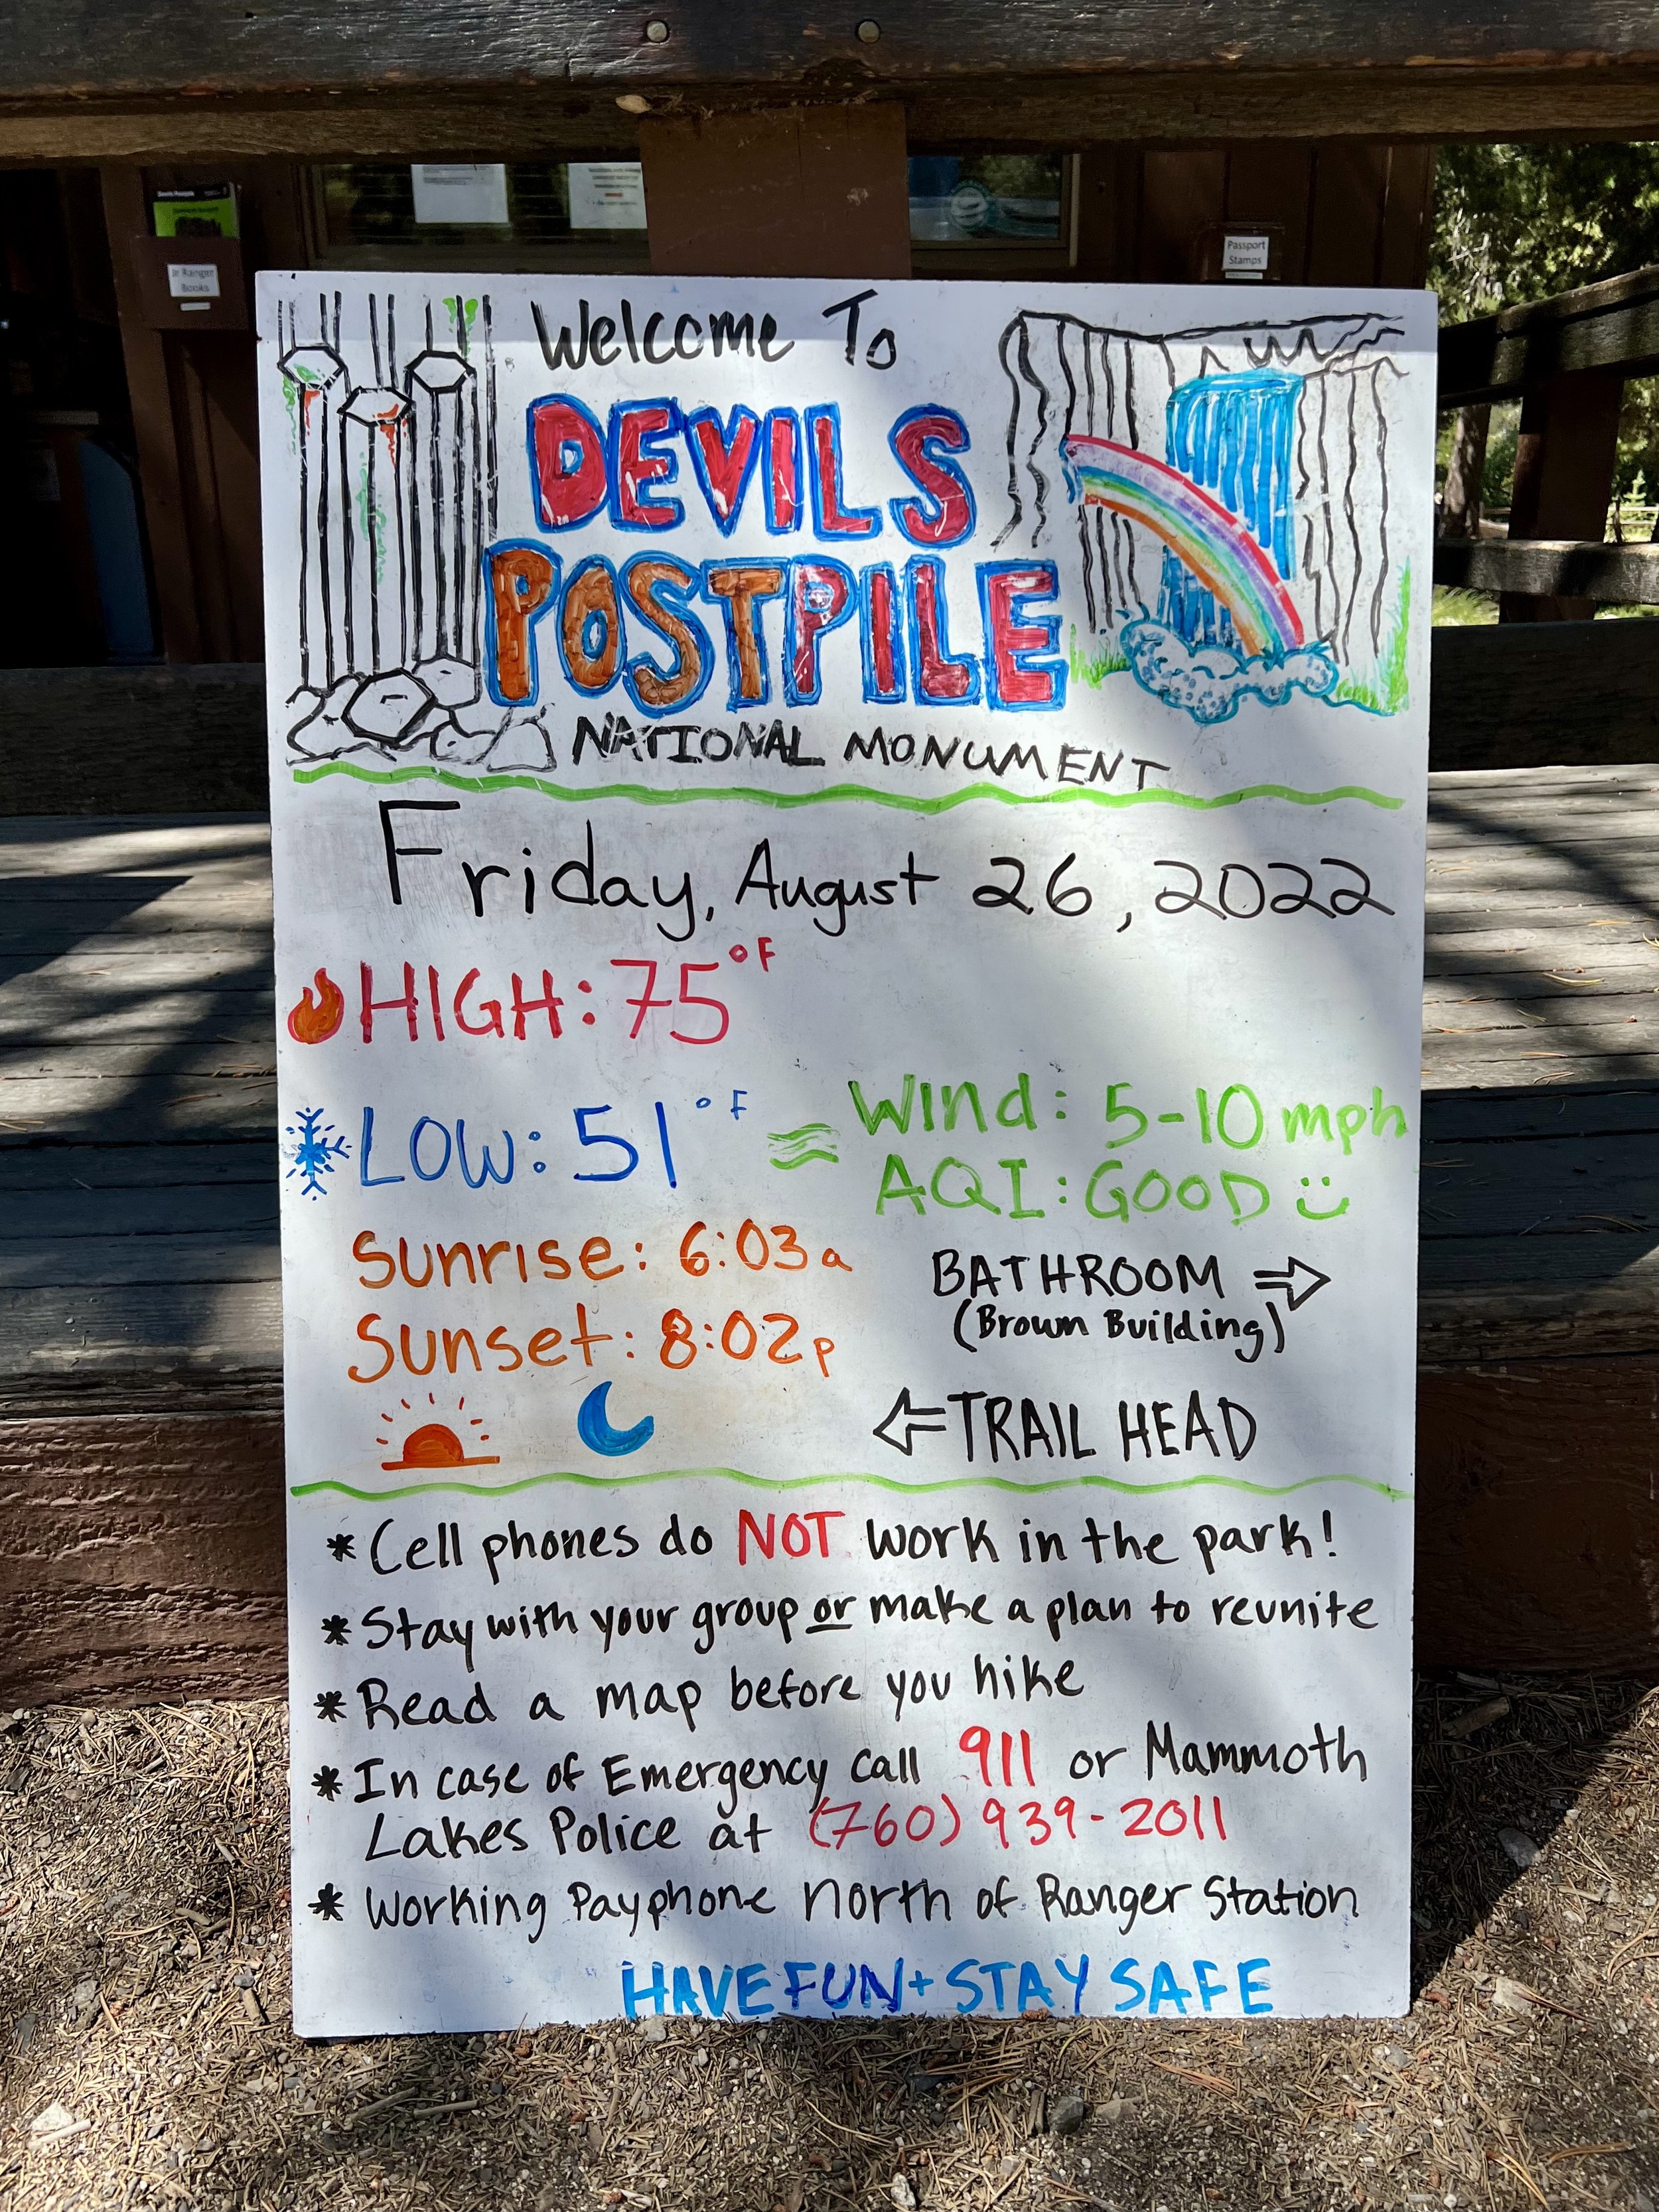 Jr Ranger
Books
Passport
Stamps
Welcome To
DEVILS
POSTPILE
NATIONAL MONUMENT
Friday, August 26, 2022
HIGH: 75°F
LOW: 51°F
Wind: 5-10 mph
AQI: GOOD
Sunrise: 6:03a
Sunset: 8:02p
BATHROOM
(Brown Building)
TRAIL HEAD
* Cell phones do NOT work in the park!
* Stay with your group or make a plan to reunite
* Read a map before you hike
* In case of Emergency call 911 or Mammoth
Lakes Police at (760) 939-2011
* Working Payphone north of Ranger Station
HAVE FUN + STAY SAFE